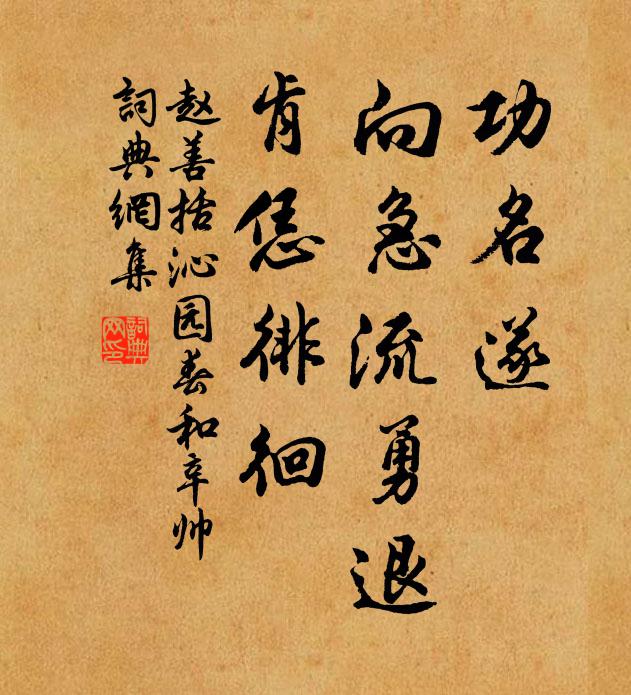 功名遂
向急流勇退
肯恁徘徊
赵善括沁园春和辛帅
詞典網集
詞典
网印